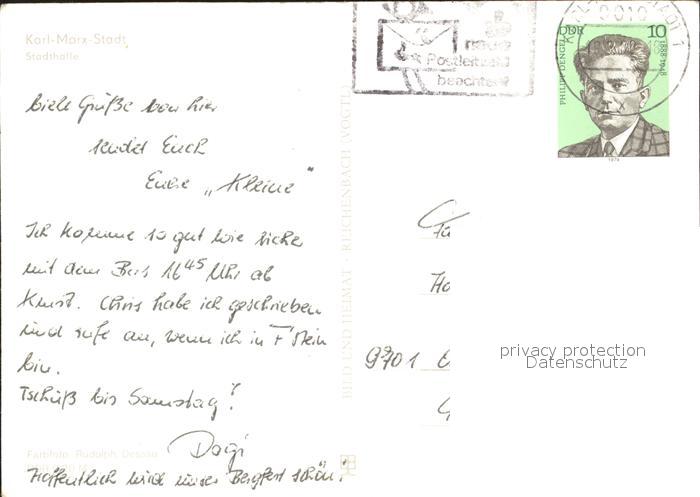 Karl-Marx-Stadt
Stadthalle
Viele Grüße von hier
sendet Euch
Eure „Kleine"
Ich komme so gut wie sicher
mit dem Bus 16 45 Uhr ab
Kmst. Chris habe ich geschrieben
und rufe an, wenn ich in F'stein
bin.
Tschüß bis Samstag!
Hoffentlich wird unser Bergfest schön.
Farbfoto: Rudolph, Dessau
BILD UND HEIMAT · REICHENBACH (VOGTL)
neue
Postleitzahl
beachten!
DDR 10
PHILIPP DENGEL 1888-1948
9701
privacy protection
Datenschutz